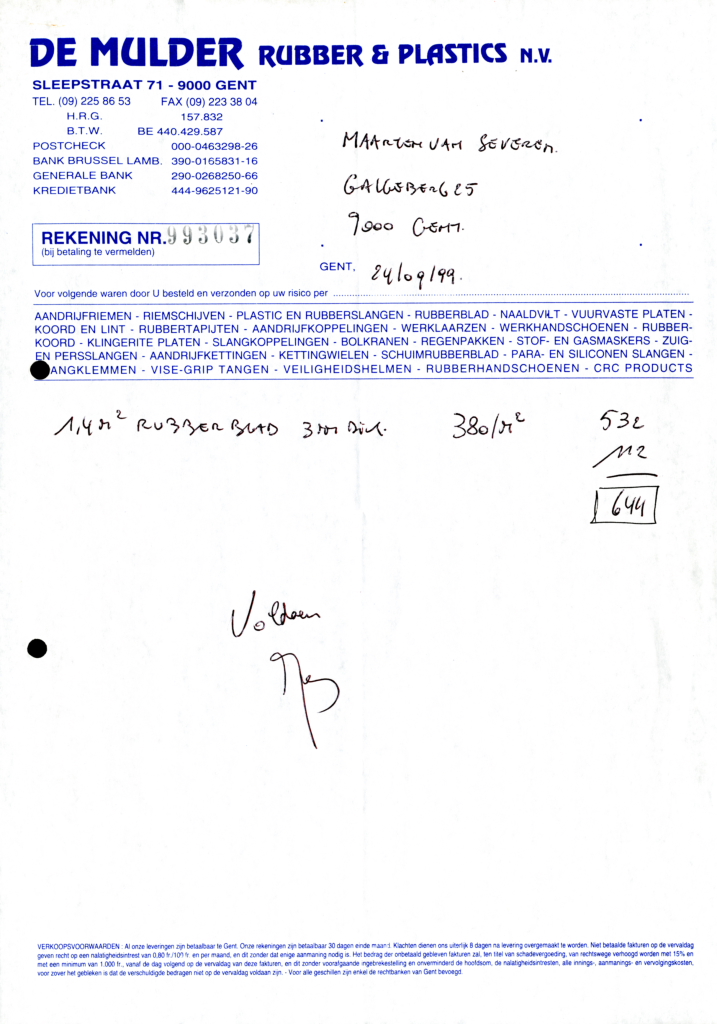 DE MULDER RUBBER & PLASTICS N.V.
SLEEPSTRAAT 71 - 9000 GENT
TEL. (09) 225 86 53 FAX (09) 223 38 04
H.R.G. 157.832
B.T.W. BE 440.429.587
POSTCHECK 000-0463298-26
BANK BRUSSEL LAMB. 390-0165831-16
GENERALE BANK 290-0268250-66
KREDIETBANK 444-9625121-90
MAARTEN VAN SEVEREN.
GALGEBERG 25
9000 GENT.
REKENING NR. 993037
(bij betaling te vermelden)
GENT, 24/09/99.
Voor volgende waren door U besteld en verzonden op uw risico per
AANDRIJFRIEMEN - RIEMSCHIJVEN - PLASTIC EN RUBBERSLANGEN - RUBBERBLAD - NAALDVILT - VUURVASTE PLATEN -
KOORD EN LINT - RUBBERTAPIJTEN - AANDRIJFKOPPELINGEN - WERKLAARZEN - WERKHANDSCHOENEN - RUBBER-
KOORD - KLINGERITE PLATEN - SLANGKOPPELINGEN - BOLKRANEN - REGENPAKKEN - STOF- EN GASMASKERS - ZUIG-
EN PERSSLANGEN - AANDRIJFKETTINGEN - KETTINGWIELEN - SCHUIMRUBBERBLAD - PARA- EN SILICONEN SLANGEN -
ANGKLEMMEN - VISE-GRIP TANGEN - VEILIGHEIDSHELMEN - RUBBERHANDSCHOENEN - CRC PRODUCTS
1,4 M² RUBBERBLAD 3 mm Dik. 380/M² 532
112
644
Voldaan
VERKOOPSVOORWAARDEN : Al onze leveringen zijn betaalbaar te Gent. Onze rekeningen zijn betaalbaar 30 dagen einde maand. Klachten dienen ons uiterlijk 8 dagen na levering overgemaakt te worden. Niet betaalde fakturen op de vervaldag
geven recht op een nalatigheidsintrest van 0,80 fr./100 fr. en per maand, en dit zonder dat enige aanmaning nodig is. Het bedrag der onbetaald gebleven fakturen zal, ten titel van schadevergoeding, van rechtswege verhoogd worden met 15% en
met een minimum van 1.000 fr., vanaf de dag volgend op de vervaldag van deze fakturen, en dit zonder voorafgaande ingebrekestelling en onverminderd de hoofdsom, de nalatigheidsintresten, alle innings-, aanmanings- en vervolgingskosten,
voor zover het gebleken is dat de verschuldigde bedragen niet op de vervaldag voldaan zijn. - Voor alle geschillen zijn enkel de rechtbanken van Gent bevoegd.